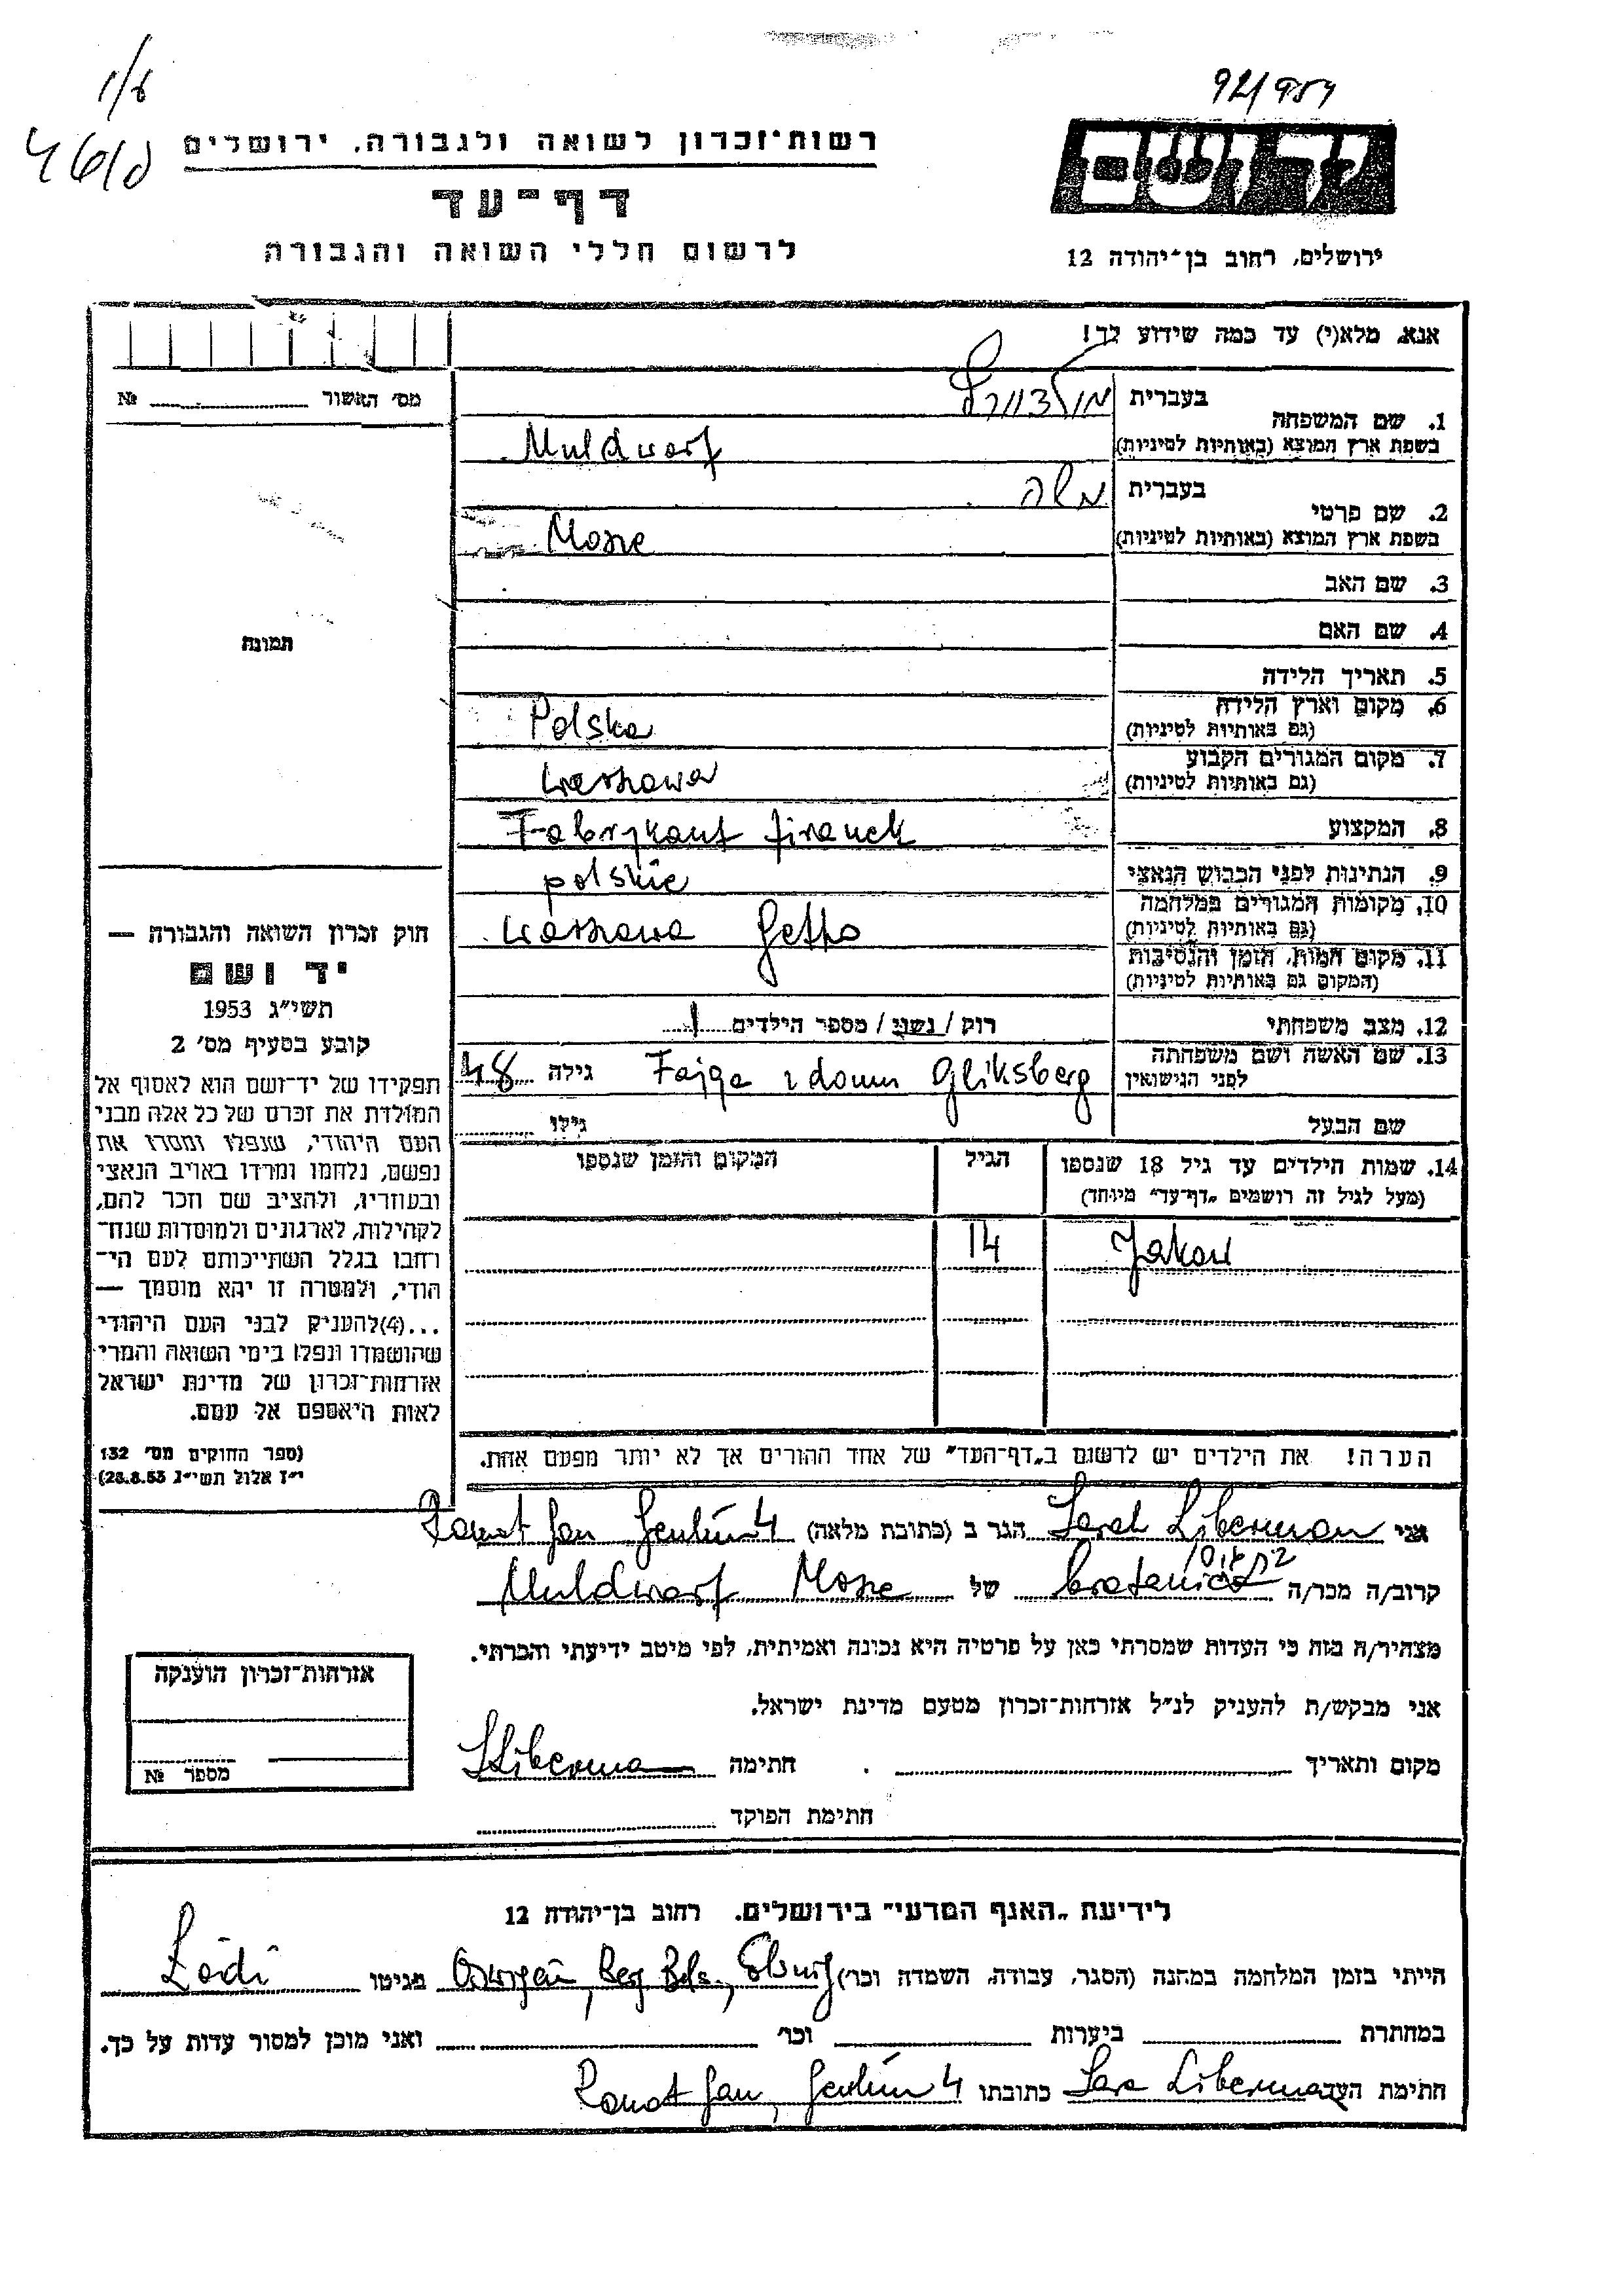 רשות־זכרון לשואה ולגבורה, ירושלים
דף־עד
לרשום חללי השואה והגבורה
ירושלים, רחוב בן־יהודה 12
אנא, מלא(י) עד כמה שידוע לך!
מס' האשור № 
1. שם המשפחה בעברית מולדוורף
בשפת ארץ המוצא (באותיות לטיניות) Muldworf
2. שם פרטי בעברית משה
בשפת ארץ המוצא (באותיות לטיניות) Mosze
3. שם האב
4. שם האם
5. תאריך הלידה
6. מקום וארץ הלידה (גם באותיות לטיניות) Polska
7. מקום המגורים הקבוע (גם באותיות לטיניות) Warszawa
8. המקצוע Fabrykant firanek
9. הנתינות לפני הכבוש הנאצי polskie
10. מקומות המגורים במלחמה (גם באותיות לטיניות) Warszawa Getto
11. מקום המות, הזמן והנסיבות (המקום גם באותיות לטיניות)
12. מצב משפחתי רוק / נשוי / מספר הילדים 1
13. שם האשה ושם משפחתה לפני הנישואין Fajga z domu Gliksberg גילה 48
שם הבעל גילו
14. שמות הילדים עד גיל 18 שנספו (מעל לגיל זה רושמים "דף־עד" מיוחד) הגיל המקום והזמן שנספו
Jakow 14
הערה! את הילדים יש לרשום ב"דף־העד" של אחד ההורים אך לא יותר מפעם אחת.
תמונה
חוק זכרון השואה והגבורה —
יד ושם
תשי"ג 1953
קובע בסעיף מס' 2
תפקידו של יד־ושם הוא לאסוף אל
המולדת את זכרם של כל אלה מבני
העם היהודי, שנפלו ומסרו את
נפשם, נלחמו ומרדו באויב הנאצי
ובעוזריו, ולהציב שם וזכר להם,
לקהילות, לארגונים ולמוסדות שנח־
רחבו בגלל השתייכותם לעם הי־
הודי, ולמטרה זו יהא מוסמך —
...(4)להעניק לבני העם היהודי
שהושמדו ונפלו בימי השואה והמרי
אזרחות־זכרון של מדינת ישראל
לאות היאספם אל עמם.
(ספר החוקים מס' 132
י"ז אלול תשי"ג 28.8.53)
אני Sarah Liberman הגר ב (כתובת מלאה) Ramat Gan 4
קרוב/ה מכר/ה של Muldworf Mosze
מצהיר/ה בזה כי העדות שמסרתי כאן על פרטיה היא נכונה ואמיתית, לפי מיטב ידיעתי והכרתי.
אני מבקש/ת להעניק לנ"ל אזרחות־זכרון מטעם מדינת ישראל.
מקום ותאריך חתימה SLiberman
חתימת הפוקד
אזרחות־זכרון הוענקה
מספר №
לידיעת "האגף המדעי" בירושלים. רחוב בן־יהודה 12
הייתי בזמן המלחמה במחנה (הסגר, עבודה, השמדה וכר') Berg Bels., בגיטו Łódź
במחתרת ביערות וכר' ואני מוכן למסור עדות על כך.
חתימת העד Sara Liberman כתובתו Ramat Gan, 4